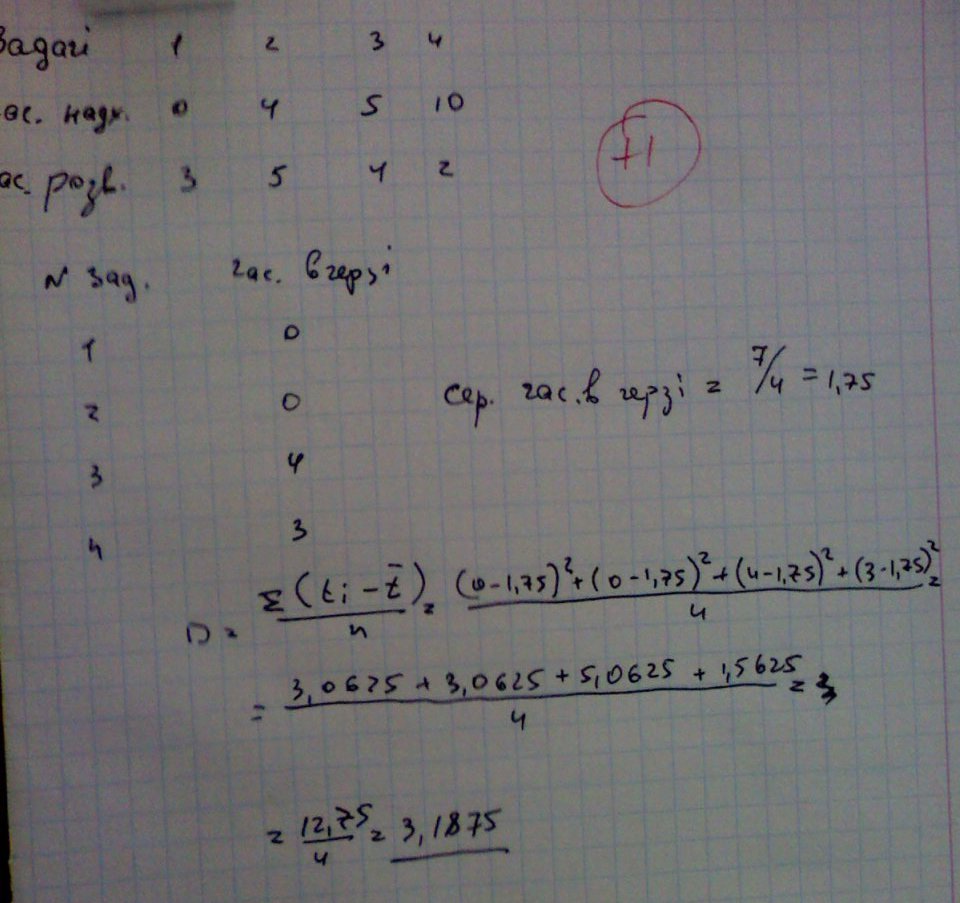 Задачі 1 2 3 4
ас. надх. 0 4 5 10
ас. розв. 3 5 4 2
N зад. час. в черзі
1 0
2 0
3 4
4 3
сер. час. в черзі = 7/4 = 1,75
D = Σ(ti - t̄) / n = ((0-1,75)² + (0-1,75)² + (4-1,75)² + (3-1,75)²) / 4 =
= (3,0625 + 3,0625 + 5,0625 + 1,5625) / 4 = 3
= 12,75 / 4 = 3,1875